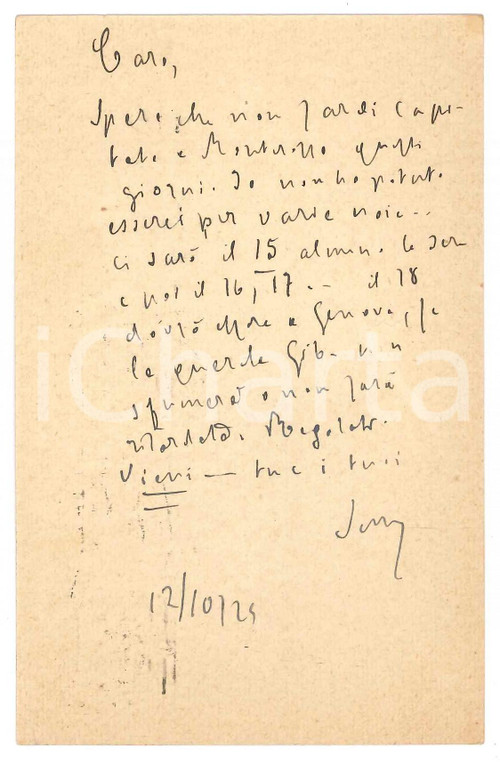 Caro,
Spero che non sarai capi-
tato a Monterosso questi
giorni. Io non ho potuto
esserci per varie noie...
ci sarò il 15 almeno la sera
e poi il 16, 17. - il 18
dovrò essere a Genova, se
la
sfumerà o non sarà
ritardata. Regolati.
Vieni — tuo e i tuoi
12/10/25
iCharta